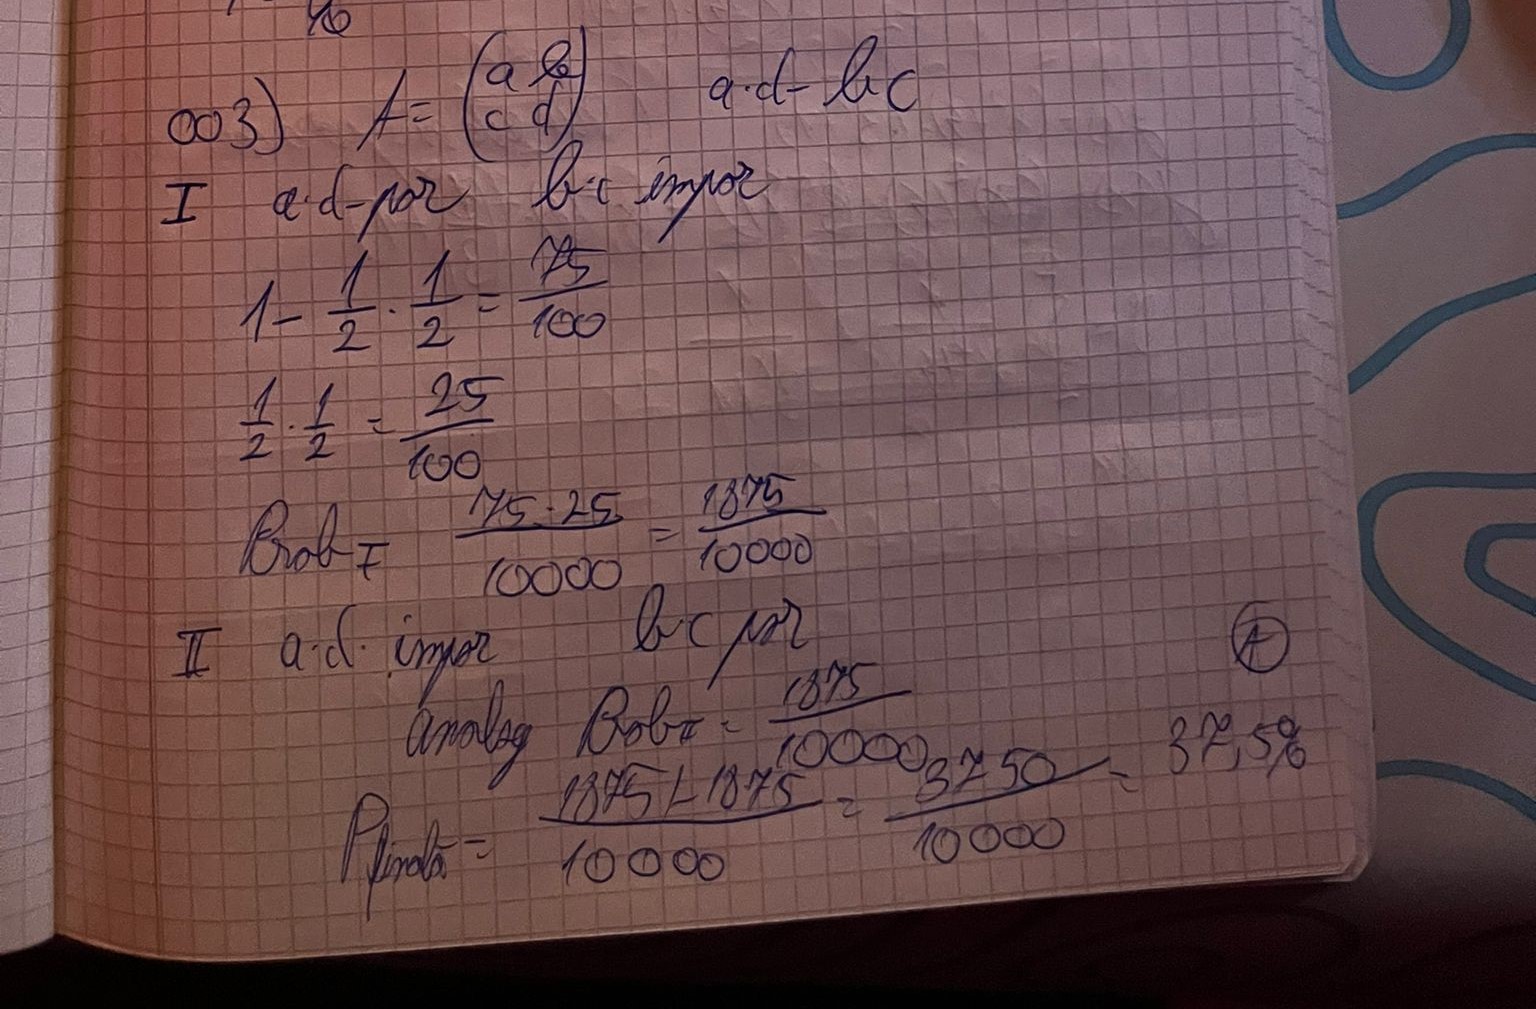 003) A = (a b c d) a·d - bc
I a·d - par b·c impar
1 - 1/2 · 1/2 = 75/100
1/2 · 1/2 = 25/100
Prob I 75·25/10000 = 1875/10000
II a·d· impar b·c par
A
analog Prob II = 1875/10000
P finală = 1875+1875/10000 = 3750/10000 = 37,5%